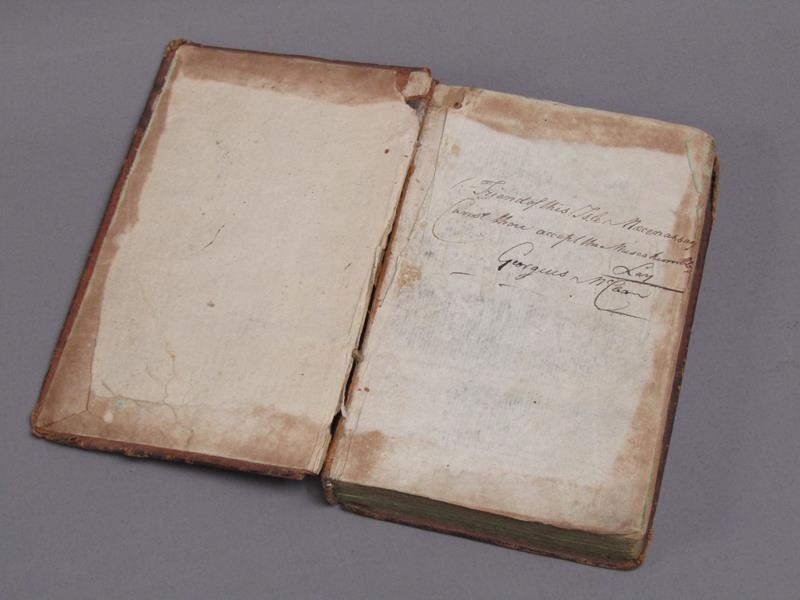 Friend of this Isle Mæcenas say
Canst thou accept the Muses humble
Lay
Georgius McCan